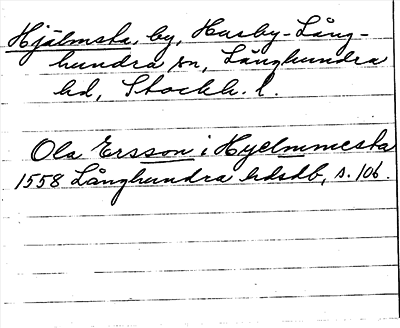 Hjälmsta, by, Husby-Lång-
hundra sn, Långhundra
hd, Stockh. l.
Ola Ersson i Hyelmmesta
1558 Långhundra hdsdb, s. 106.